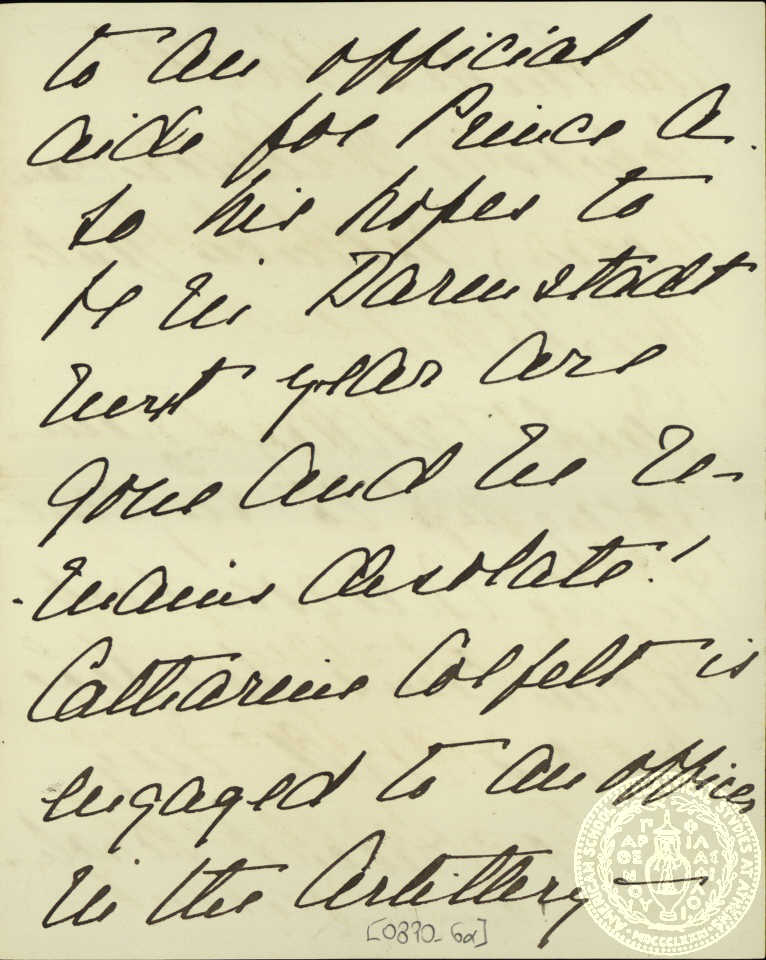 to an official
aide for Prince A.
So his hopes to
be in Darmstadt
next year are
gone and he re-
mains desolate!
Catharine Colfelt is
engaged to an officer
in the Artillery —
[0370-6α]
AMERICAN SCHOOL OF CLASSICAL STUDIES AT ATHENS
ΠΑΡΘΕΝΟΥ ΦΙΛΑΣ ΦΙΛΑΙ
MDCCCLXXXI